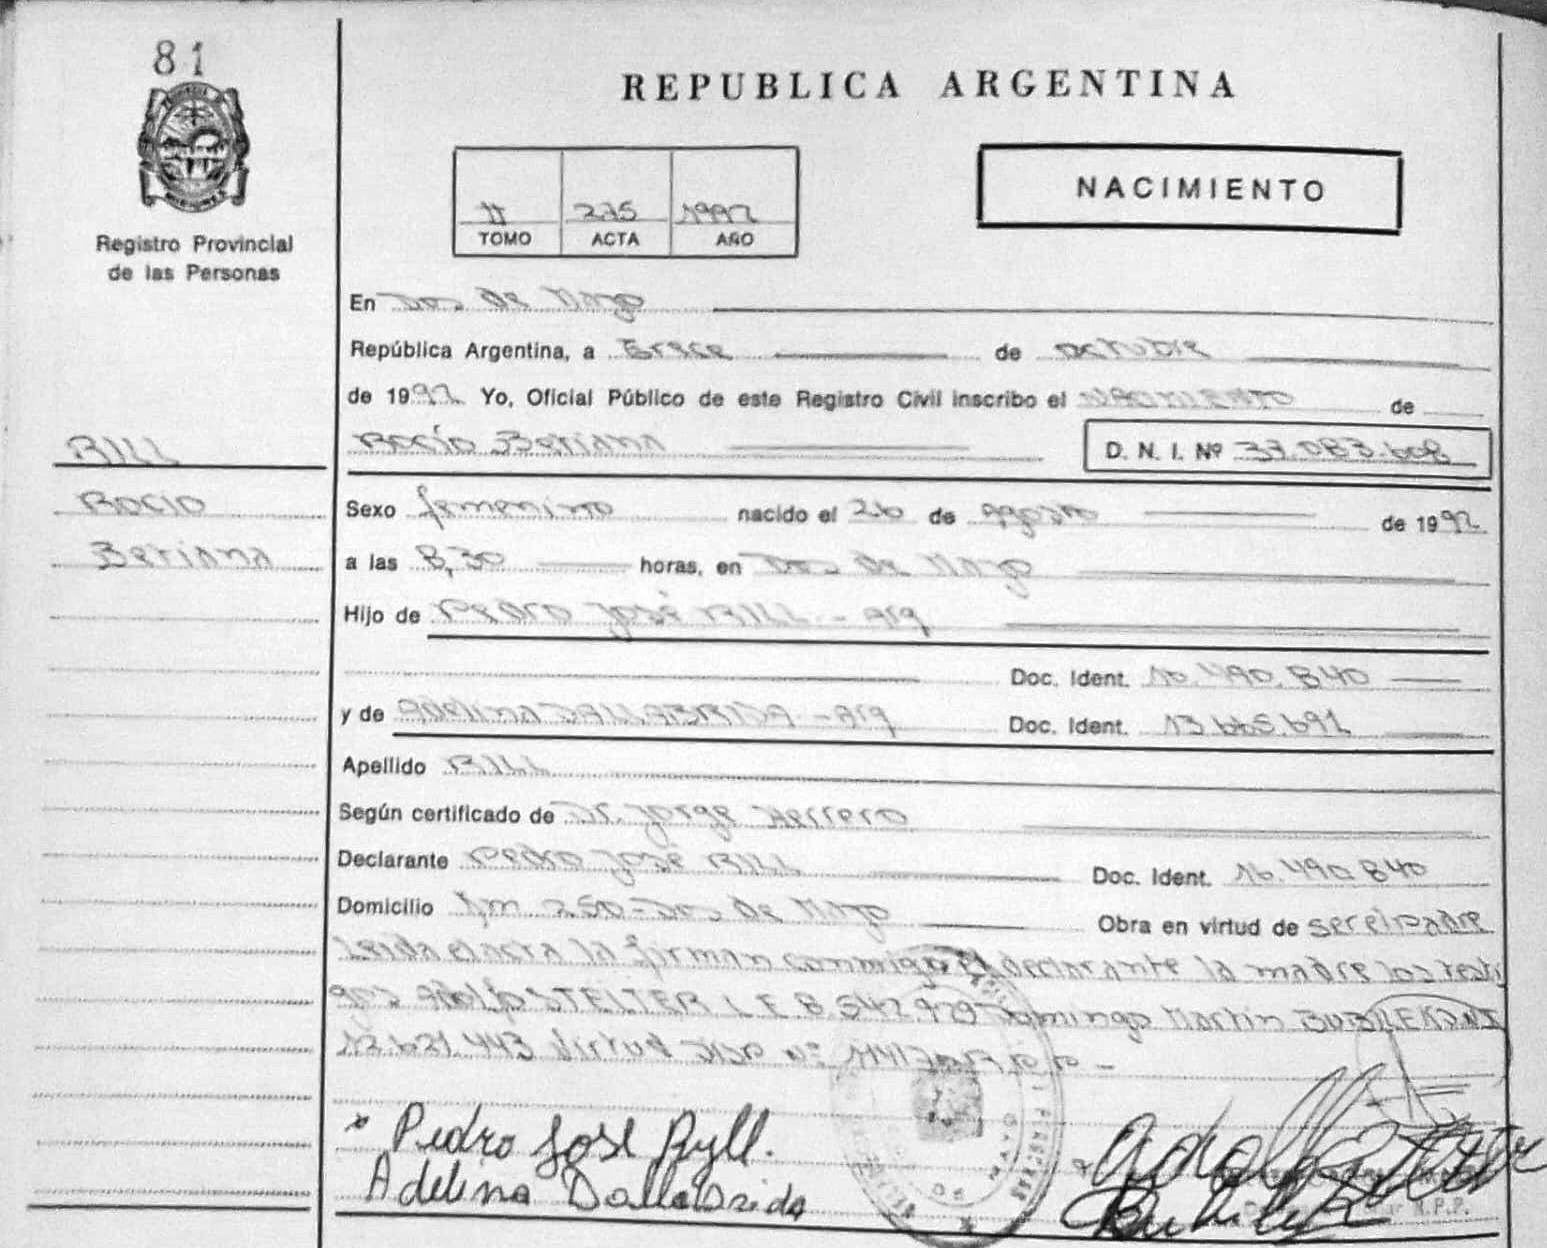 81
REPUBLICA ARGENTINA
NACIMIENTO
II 275 1992
TOMO ACTA AÑO
Registro Provincial
de las Personas
En Dos de Mayo
República Argentina, a trece de octubre
de 1992 Yo, Oficial Público de este Registro Civil inscribo el NACIMIENTO de
RILL
Rocío Betiana D. N. I. Nº 37.083.608
Rocio
Sexo femenino nacido el 26 de agosto de 1992
Betiana
a las 8,30 horas, en Dos de Mayo
Hijo de Pedro José RILL - Arg
Doc. Ident. 490.840
y de Adelina DALLABRIDA - Arg Doc. Ident. 13.665.691
Apellido RILL
Según certificado de Dr. Jorge Herrero
Declarante Pedro José RILL Doc. Ident. 16.490.840
Domicilio Km 250 - Dos de Mayo Obra en virtud de ser el padre
Leida el acta la firman conmigo el declarante la madre los testi
gos Adolfo STELTER L.E 8.542.929 Domingo Martin
12.621.443 Virtud Disp Nº
Pedro José Ryll.
Adelina Dallabrida